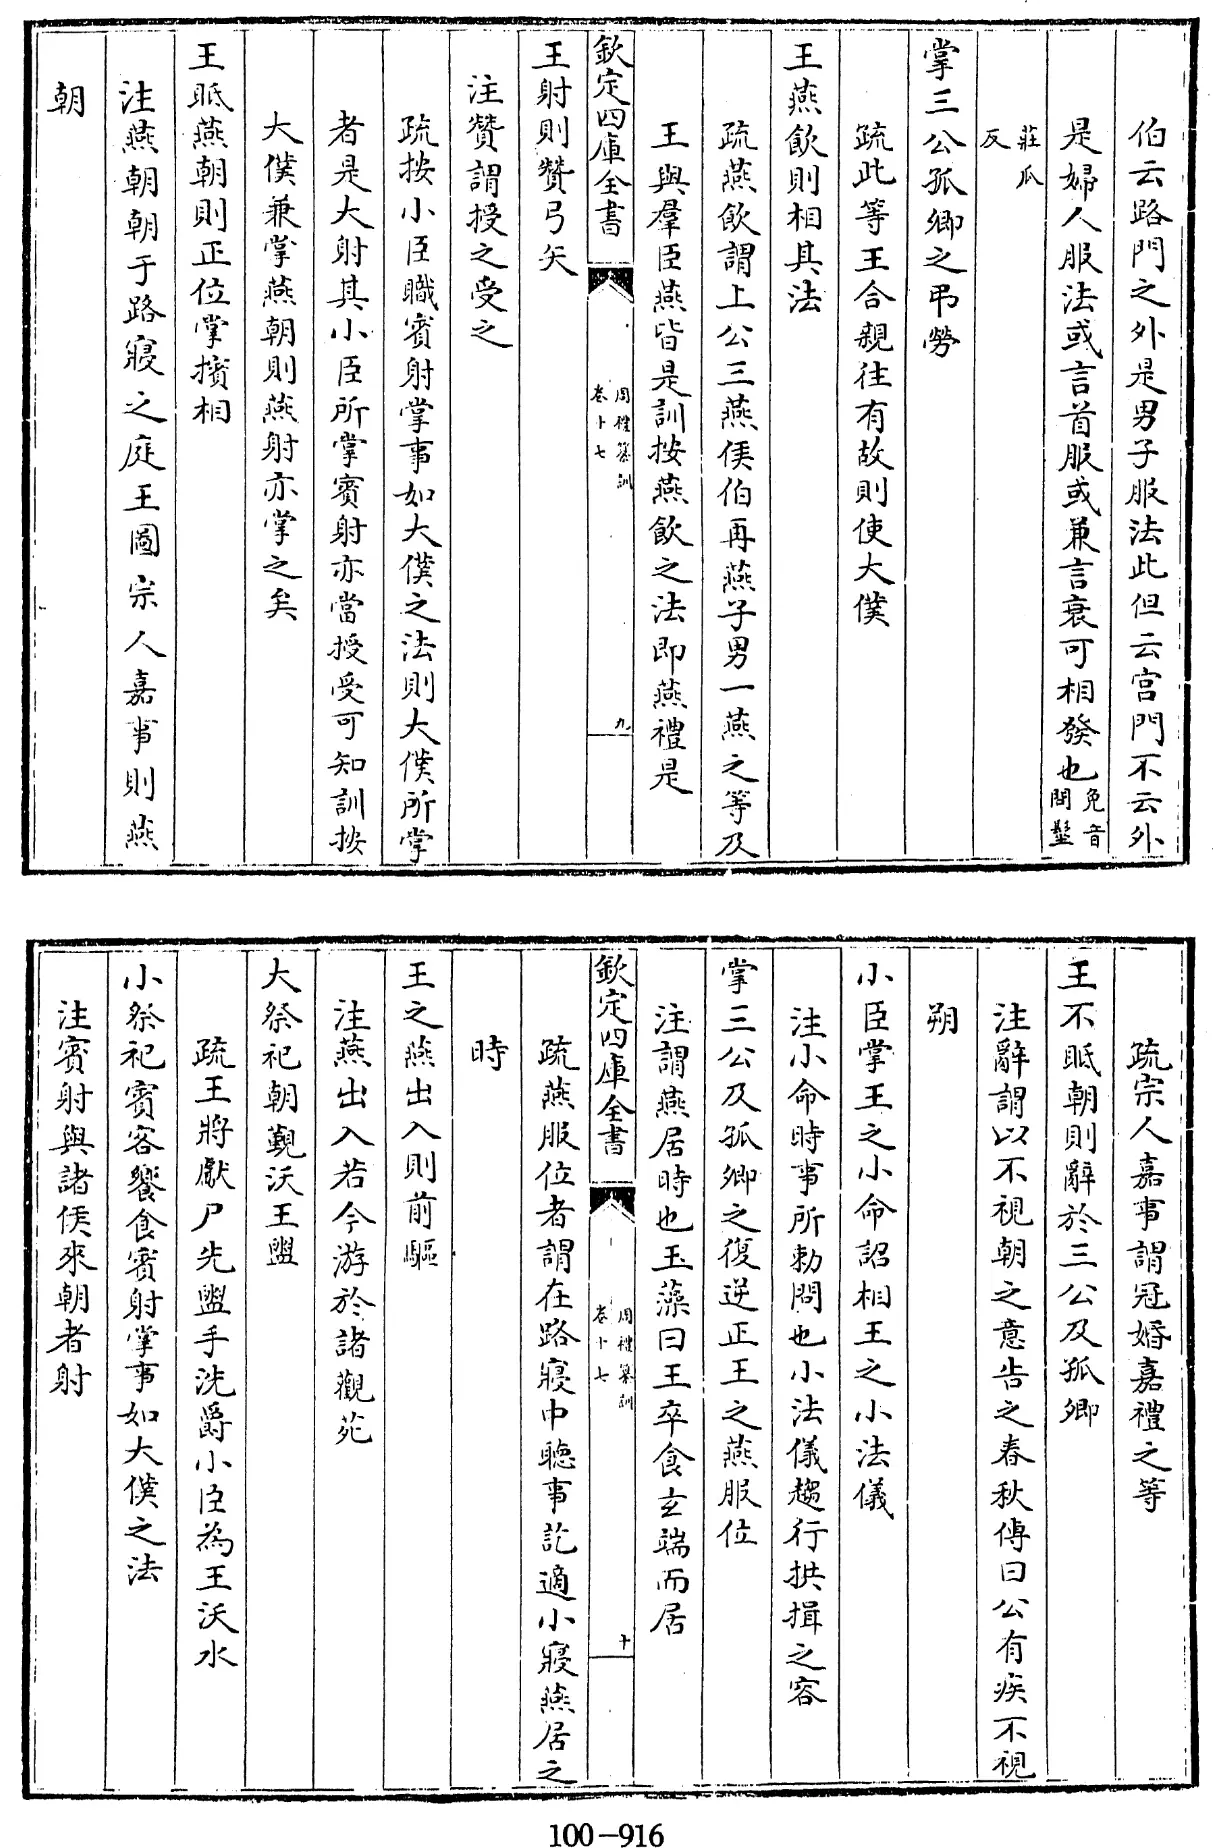 伯云路門之外是男子服法此但云宫門不云外
是婦人服法或言首服或兼言衰可相發也免音問髽
莊瓜反
掌三公孤卿之弔勞
疏此等王合親往有故則使大僕
王燕飲則相其法
疏燕飲謂上公三燕侯伯再燕子男一燕之等及
王與羣臣燕皆是訓按燕飲之法即燕禮是
欽定四庫全書
周禮纂訓
卷十七
九
王射則贊弓矢
注贊謂授之受之
疏按小臣職賓射掌事如大僕之法則大僕所掌
者是大射其小臣所掌賓射亦當授受可知訓按
大僕兼掌燕朝則燕射亦掌之矣
王眡燕朝則正位掌擯相
注燕朝朝于路寢之庭王圖宗人嘉事則燕
朝
疏宗人嘉事謂冠婚嘉禮之等
王不眡朝則辭於三公及孤卿
注辭謂以不視朝之意告之春秋傳曰公有疾不視
朔
小臣掌王之小命詔相王之小法儀
注小命時事所勑問也小法儀趨行拱揖之容
掌三公及孤卿之復逆正王之燕服位
注謂燕居時也玉藻曰王卒食玄端而居
欽定四庫全書
周禮纂訓
卷十七
十
疏燕服位者謂在路寢中聽事訖適小寢燕居之
時
王之燕出入則前驅
注燕出入若今游於諸觀苑
大祭祀朝覲沃王盥
疏王將獻尸先盥手洗爵小臣為王沃水
小祭祀賓客饗食賓射掌事如大僕之法
注賓射與諸侯來朝者射
100-916